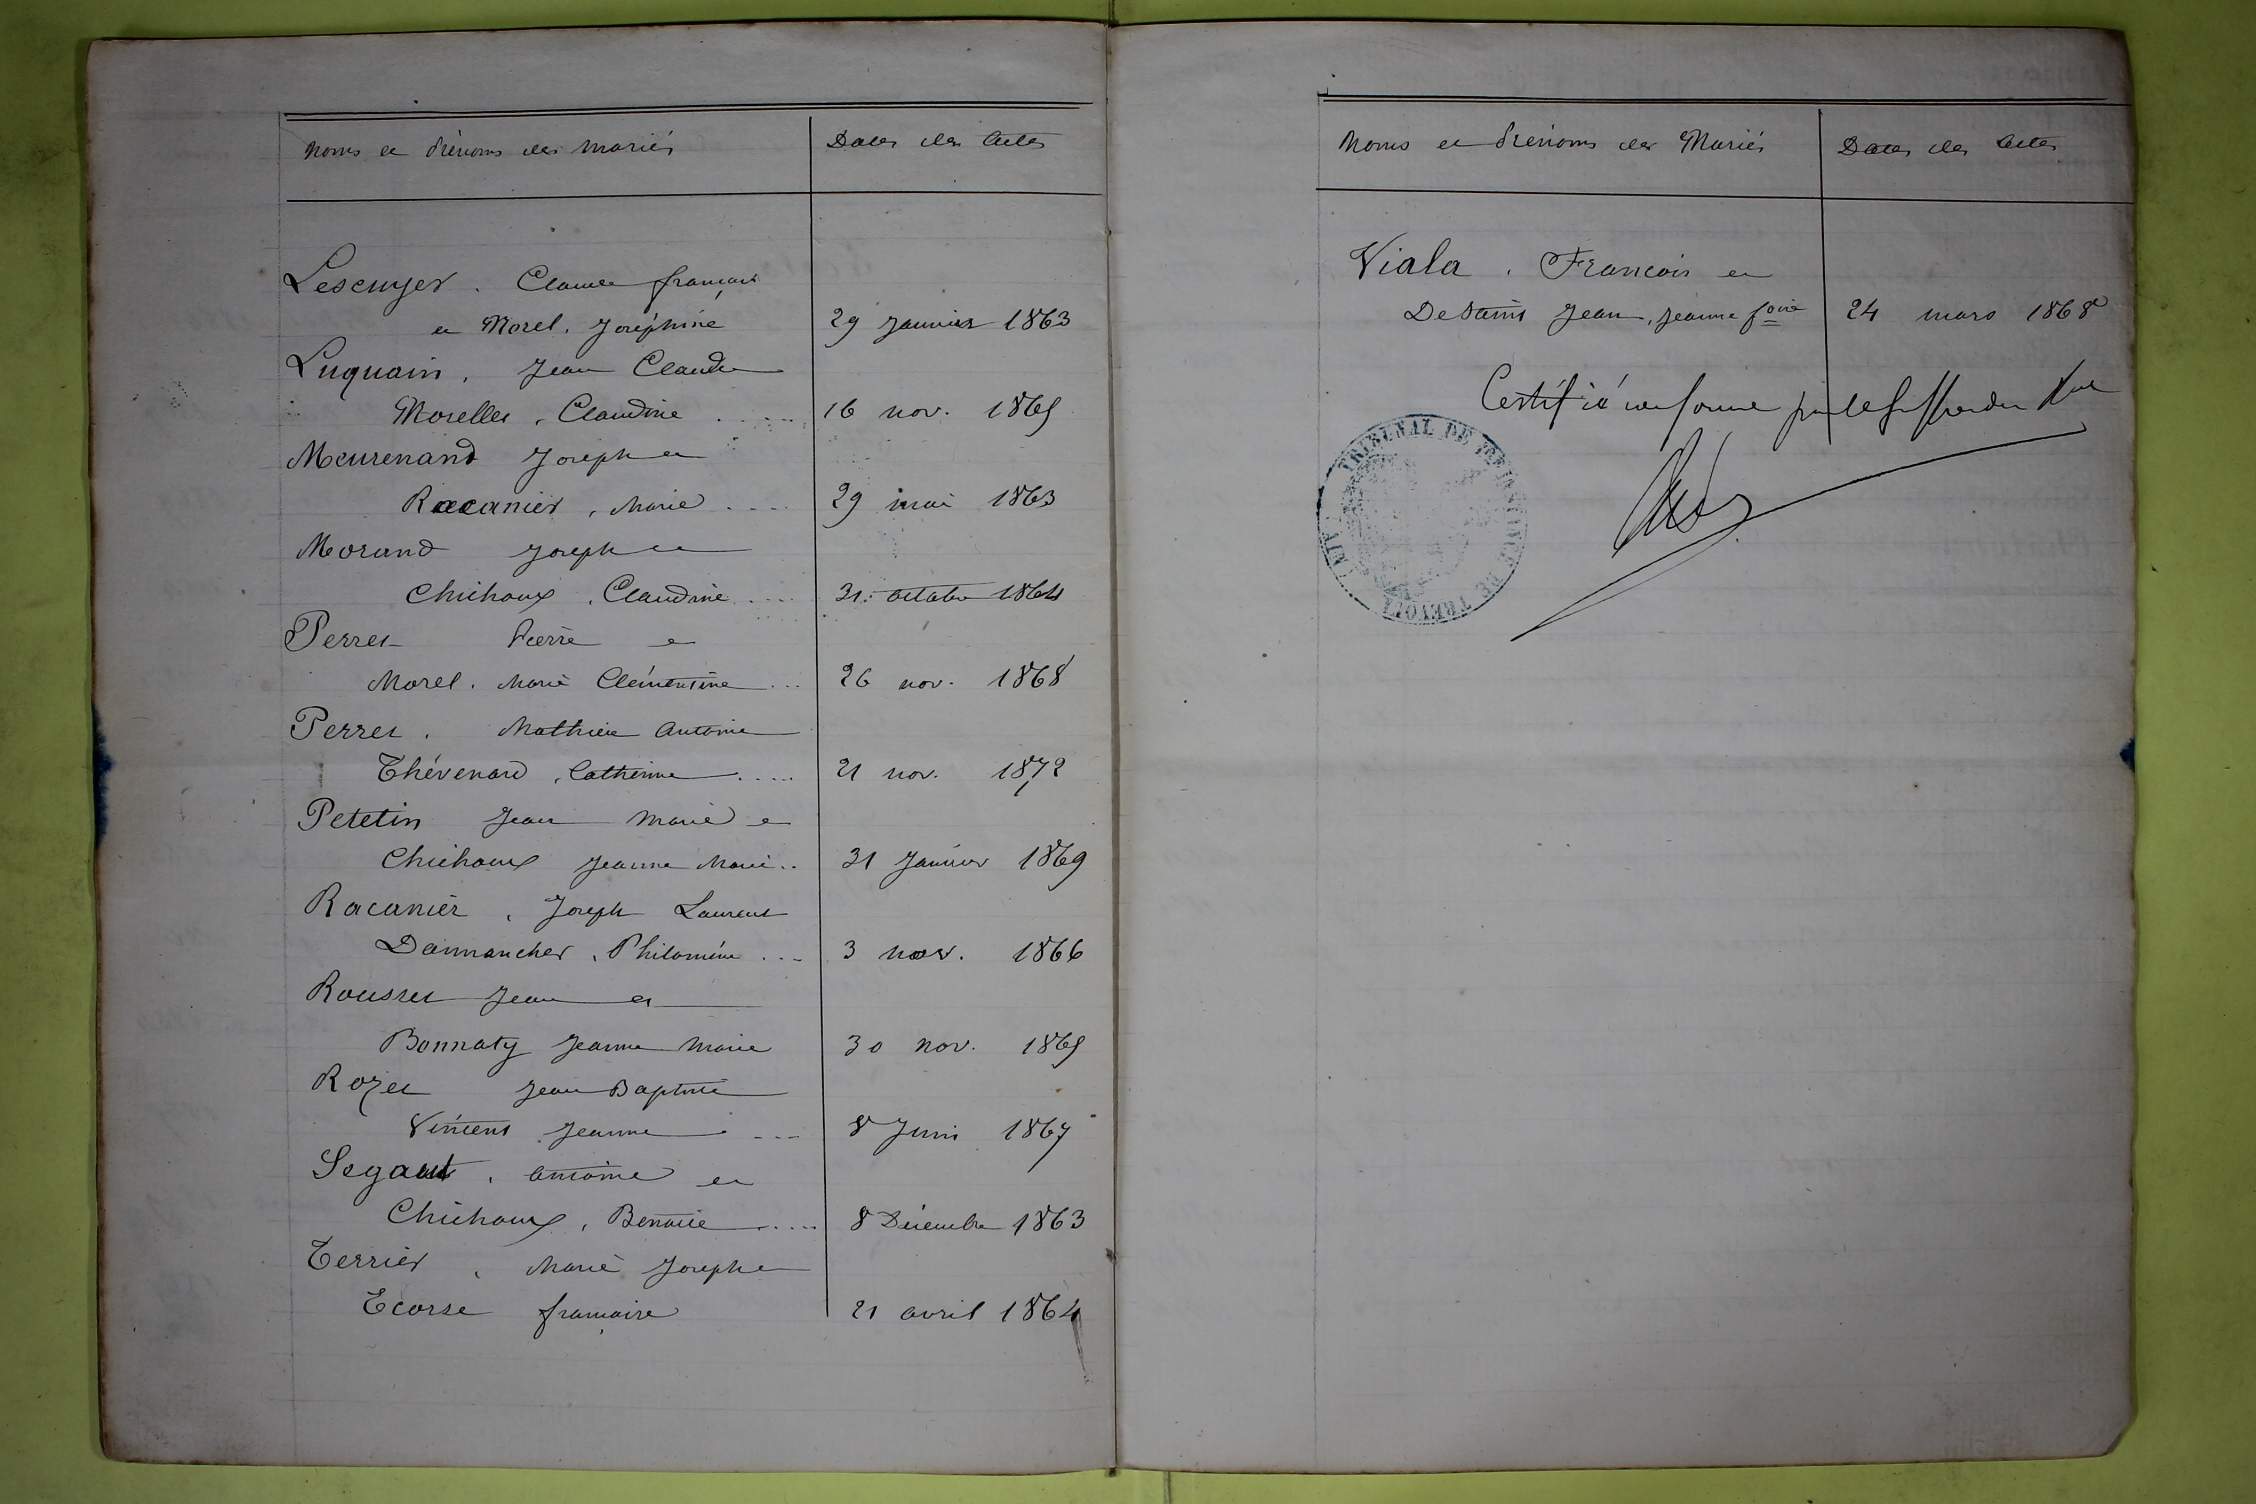 Noms et Prénoms des Mariés Dates des Actes
Lescuyer. Claude françois
et Morel. Joséphine 29 Janvier 1863
Luquain. Jean Claude
Morelles, Claudine 16 nov. 1865
Meurenand Joseph et
Racanier, Marie 29 mai 1863
Morand Joseph et
Chichoux, Claudine 31 octobre 1864
Perret Pierre et
Morel. Marie Clémentine 26 nov. 1868
Perret. Mathieu Antoine
Thévenard, Catherine 21 nov. 1872
Petetin Jean Marie et
Chichoux Jeanne Marie 31 Janvier 1869
Racanier, Joseph Laurent
Dannancher, Philomène 3 nov. 1866
Rousset Jean et
Bonnaty Jeanne Marie 30 nov. 1865
Rozet Jean Baptiste
Vincent Jeanne 8 Juin 1867
Segaut, Antoine et
Chichoux, Benoite 8 Décembre 1863
Terrier, Marie Joseph et
Ecorse françoise 21 avril 1864
Noms et Prénoms des Mariés Dates des Actes
Viala. François et
Jean, Jeanne fçoise 24 mars 1868
Certifié conforme par le Greffier du
TRIBUNAL DE 1RE INSTANCE DE TREVOUX (AIN)